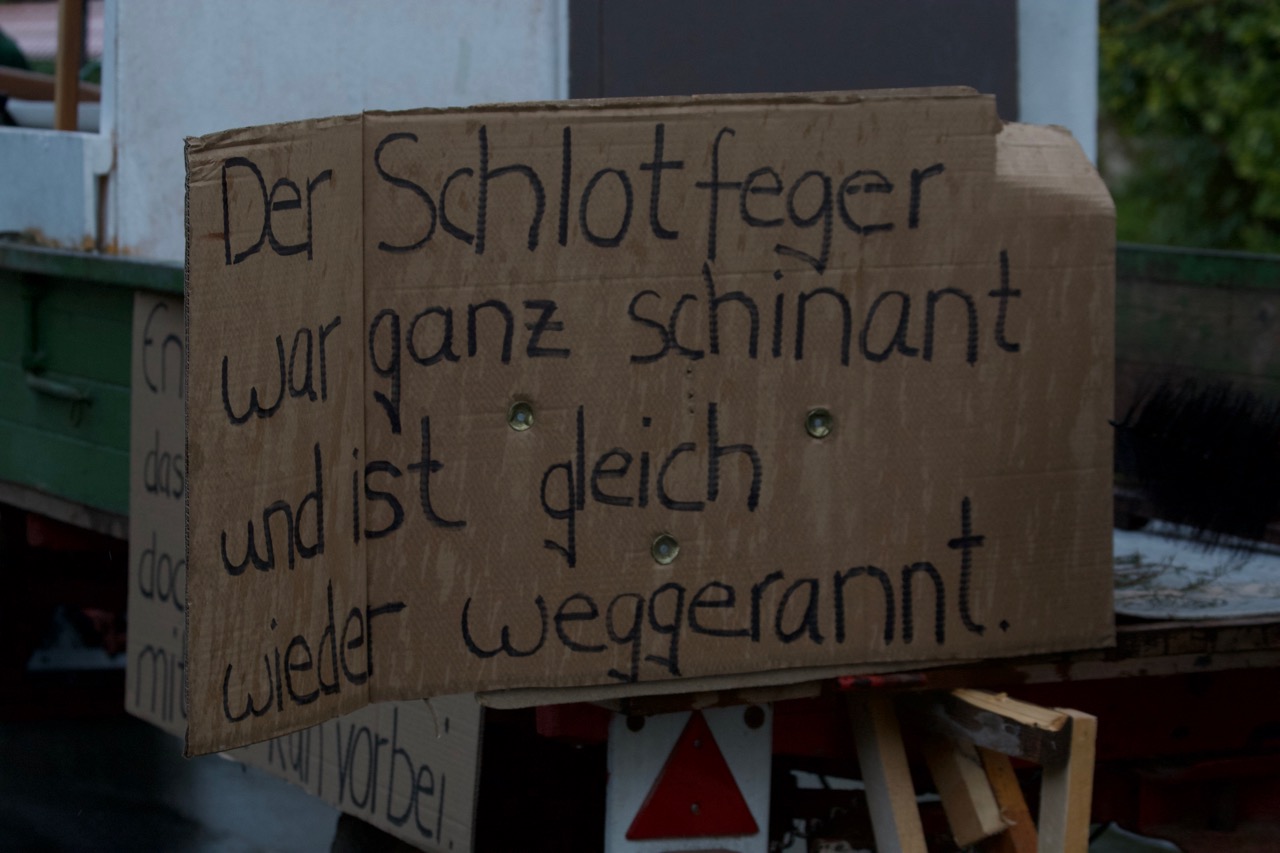 Der Schlotfeger
war ganz schinant
und ist gleich
wieder weggerannt.
das
vorbei.